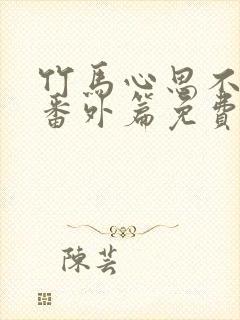 竹馬心思不
番外篇免費
陳芸